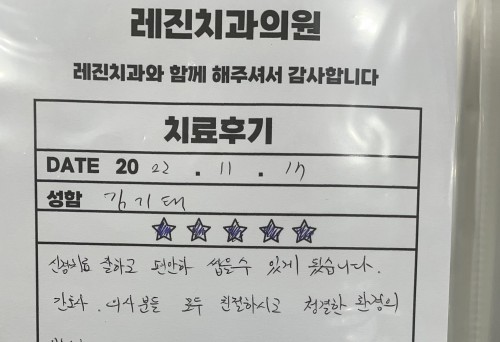 레진치과의원
레진치과와 함께 해주셔서 감사합니다
치료후기
DATE 20 22 . 11 . 17
성함 김기태
잘하고 편안하 씹을수 있게 됬습니다.
간호사. 의사분들 모두 친절하시고 청결한 환경의